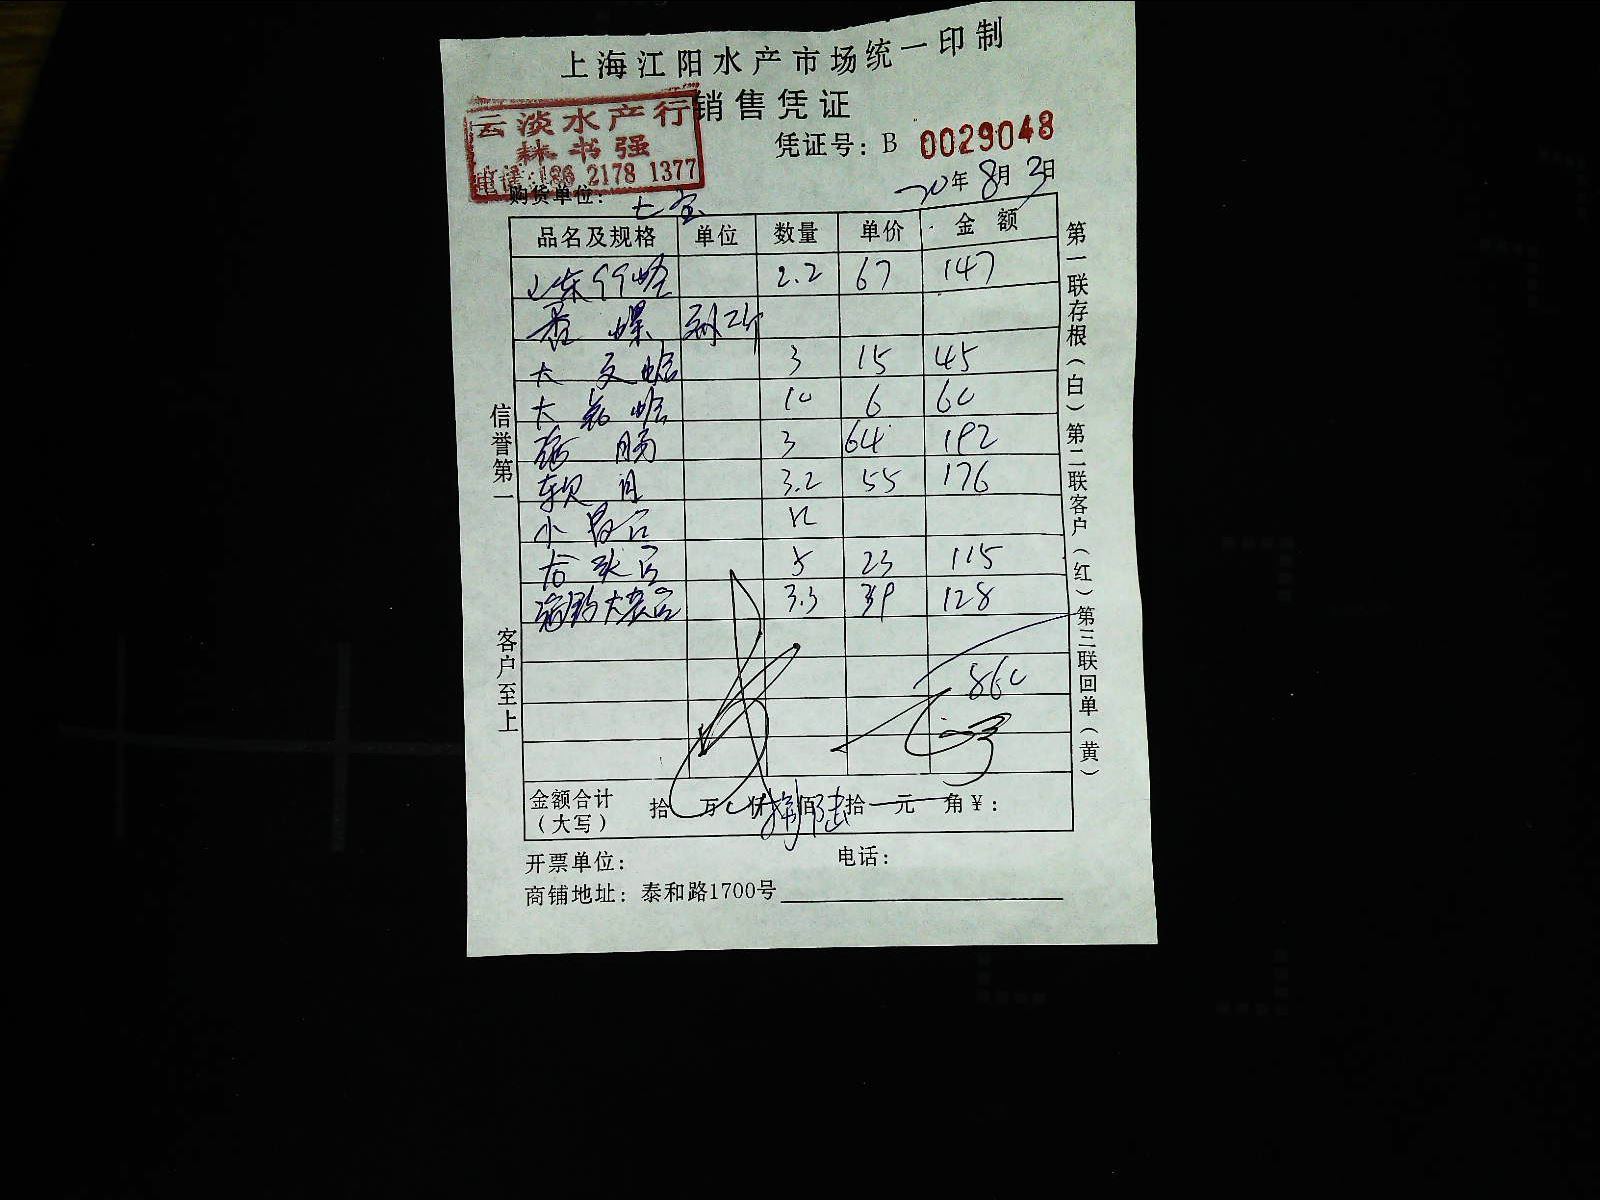 上海江阳水产市场统一印制
销售凭证
云淡水产行
林书强
电话:186 2178 1377
凭证号: B 0029048
20年 8月 3日
购货单位: 七宝
品名及规格 单位 数量 单价 金额
山东 2.2 67 147
香螺
大文蛤 3 15 45
大 蛤 10 6 60
海肠 3 64 192
软贝 3.2 55 176
小
5 23 115
3.3 39 128
860
金额合计(大写) 拾 万 仟 捌 佰 陆 拾 元 角 ¥:
开票单位: 电话:
商铺地址: 泰和路1700号
信誉第一
客户至上
第一联存根(白)第二联客户(红)第三联回单(黄)